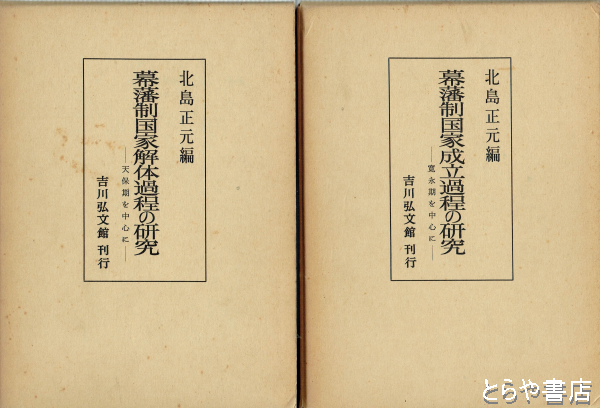 北島正元編
幕藩制国家解体過程の研究
―天保期を中心に―
吉川弘文館 刊行
北島正元編
幕藩制国家成立過程の研究
―寛永期を中心に―
吉川弘文館 刊行
とらや書店